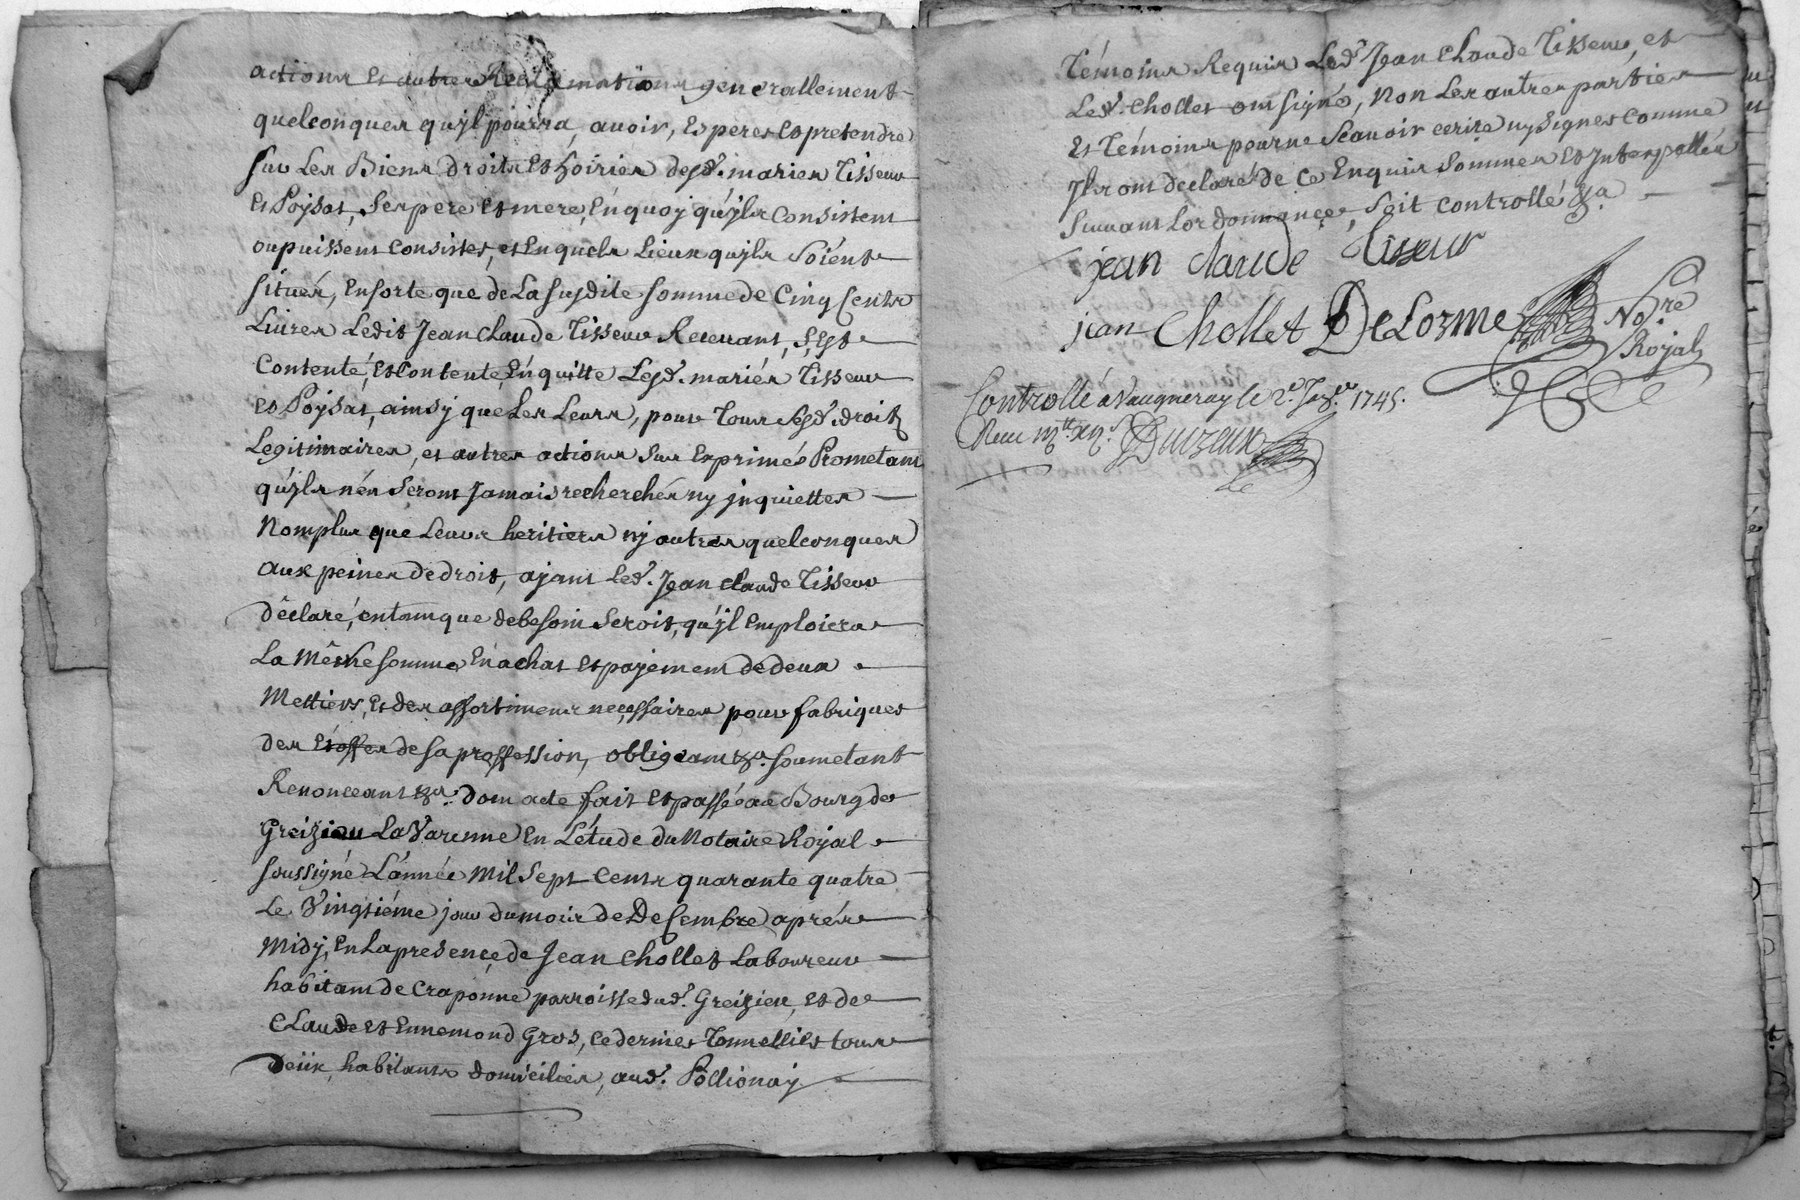 actions et autres Reclamations generallement
quelconques qu'jl pourra, avoir, Esperer et pretendre
sur Les Biens droits et hoiries desd. mariés Tisseur
Et Poysat, ses pere et mere, En quoy qu'jls Consistent
ou puissent Consister, et En quels Lieux qu'jls soient
situés, Ensorte que de La susdite somme de Cinq Cents
Livres Ledit Jean Claude Tisseur Recevant, s'Est
Contenté, et Contente, En quitte Lesd. mariés Tisseur
et Poysat, ainsy que Les Leurs, pour Tous sesd. droits
Legitimaires, et autres actions sus Exprimés Prometant
qu'jls n'en seront Jamais recherchés ny jnquiettes
Nomplus que Leurs heritiers ny autres quelconques
aux peines de droit, ajant Led. Jean Claude Tisseur
Déclaré, entamque de besoin seroit, qu'jl Emploiera
La Même somme En achat et payement de deux
Mettiers, Et des assortiments necessaires pour fabriquer
des Etoffes de sa proffession, obligeant &a. soumetant
Renonceant &a. dont acte fait et passé au Bourg de
Greizieu La Varenne En L'étude du Notaire Royal
soussigné L'année Mil Sept Cents quarante quatre
Le Vingtiéme jour du mois de Decembre après
Midy, En La presence de Jean Chollet Laboureur
habitant de Craponne parroisse dud. Greizieu, et de
Claude et Ennemond Gros, ce dernier Tonnellier tous
deux habitants domiciliés, aud. Pollionay
Témoins Requis Led. Jean Claude Tisseur, et
Led. Chollet ont signé, Non Les autres parties
Et Témoins pour ne Scavoir ecrire ny signer comme
Jls ont declaré de ce Enquis sommés et Interpellés
Suivant L'ordonnance, soit controllé &a
jean claude Tisseur
jean Chollet DeLorme Nore
Royal
Controllé a Vaugneray le 2e. Jer. 1745.
Receu